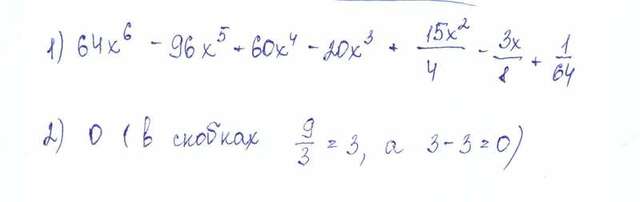 1) 64x⁶ - 96x⁵ + 60x⁴ - 20x³ + 15x²/4 - 3x/8 + 1/64
2) 0 (в скобках 9/3 = 3, а 3-3=0)